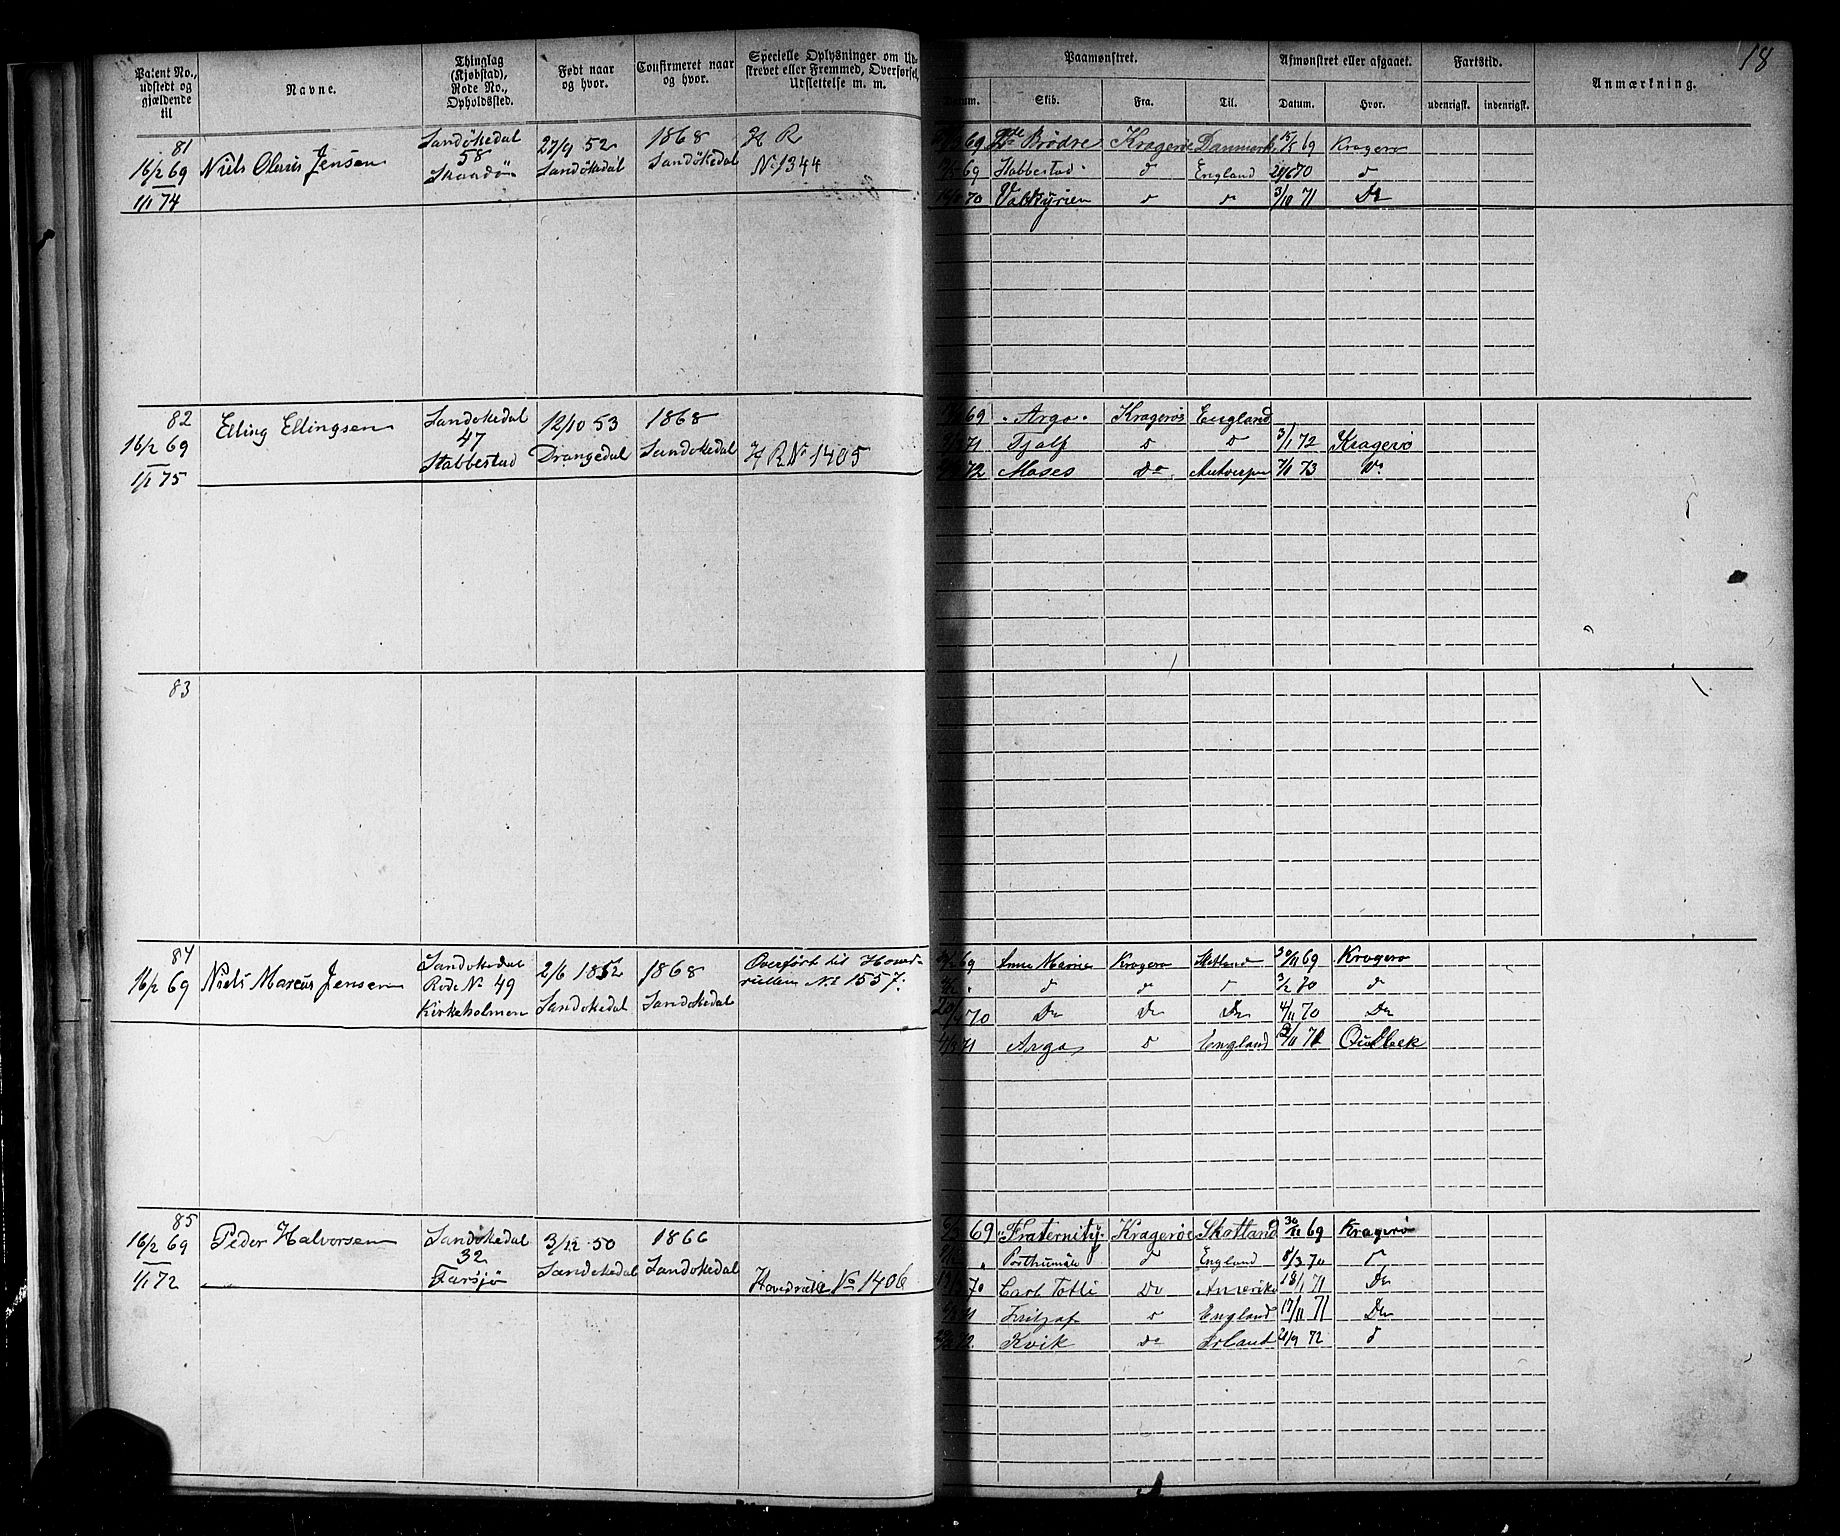 18
Patent No., udstedt og gjældende til
Navne.
Thinglag (Kjøbstad), Rode No., Opholdssted.
Født naar og hvor.
Confirmeret naar og hvor.
Specielle Oplysninger om Udstrevet eller Fremmed, Overførsel, Udslettelse m. m.
Paamønstret.
Datum. Skib. Fra. Til.
Afmønstret eller afgaaet.
Datum. Hvor.
Fartstid.
udenrigsk. indenrigsk.
Anmærkning.
81
16/2 69
1/1 74
Niels Olaus Jensen
Sandökedal
58
Skaadö
27/9 52
Sandökedal
1868
Sandökedal
H R
No 1344
69 Brödre Kragerøe Danmark 15/5 69 Kragerø
69 Stabbestad d England 70 d
70 Valkyrien d d 3/10 71 Do
82
16/2 69
1/1 75
Elling Ellingsen
Sandokedal
47
Stabbestad
12/10 53
Drangedal
1868
Sandokedal
H R No 1405
69 Argo Kragerøe England
71 Djalf d d 3/1 72 Kragerø
72 Moses Do Antverpen 7/1 73 Do
83
84
16/2 69
Niels Marcus Jensen
Sandokedal
Rode No 49
Kirkeholmen
2/6 1852
Sandokedal
1868
Sandokedal
Overført til Hoved-
rullen No 1557.
69 Anna Marie Kragerø Skotland 69 Kragerø
d d d 3/2 70 d
70 Do Do Do 4/11 70 Do
71 Argo d England 71
85
16/2 69
1/1 72
Peder Halvorsen
Sandokedal
32
Farsjø
3/12 50
Sandokedal
1866
Sandokedal
Hovedrulle No 1406
69 Fraternity Kragerøe Skotland 69 Kragerø
d England 8/3 70 d
70 Carl Totti Do Amerika 18/1 71 Do
71 Fritjof d England 17/11 71 Do
72 Kvik Do Irland 72 d